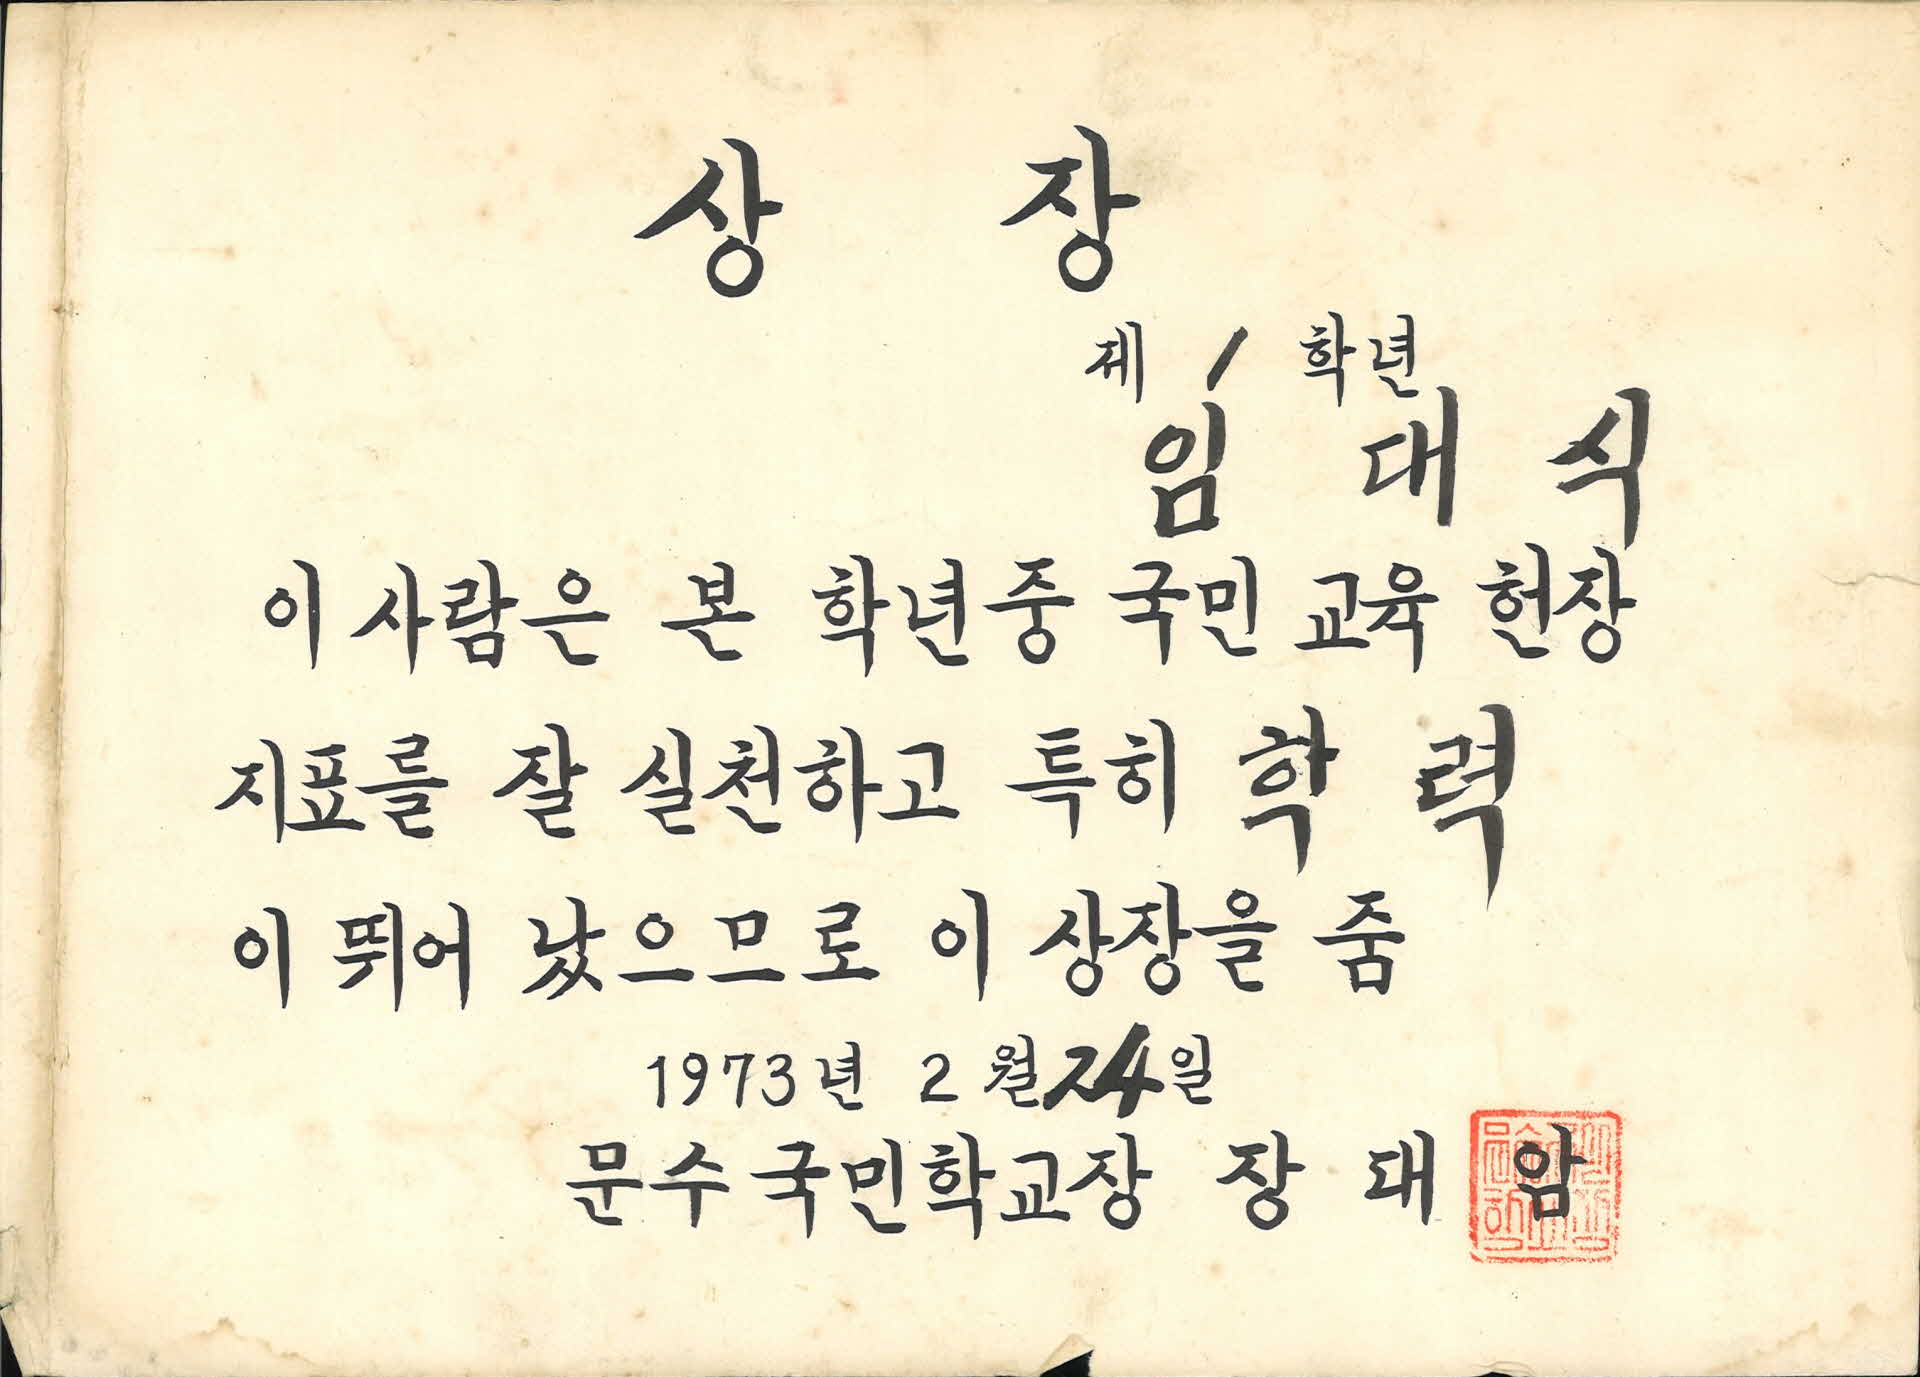 상 장
제 1 학년
임 대 식
이 사람은 본 학년중 국민 교육 헌장
지표를 잘 실천하고 특히 학 력
이 뛰어 났으므로 이 상장을 줌
1973년 2월 24일
문수 국민학교장 장 대 암